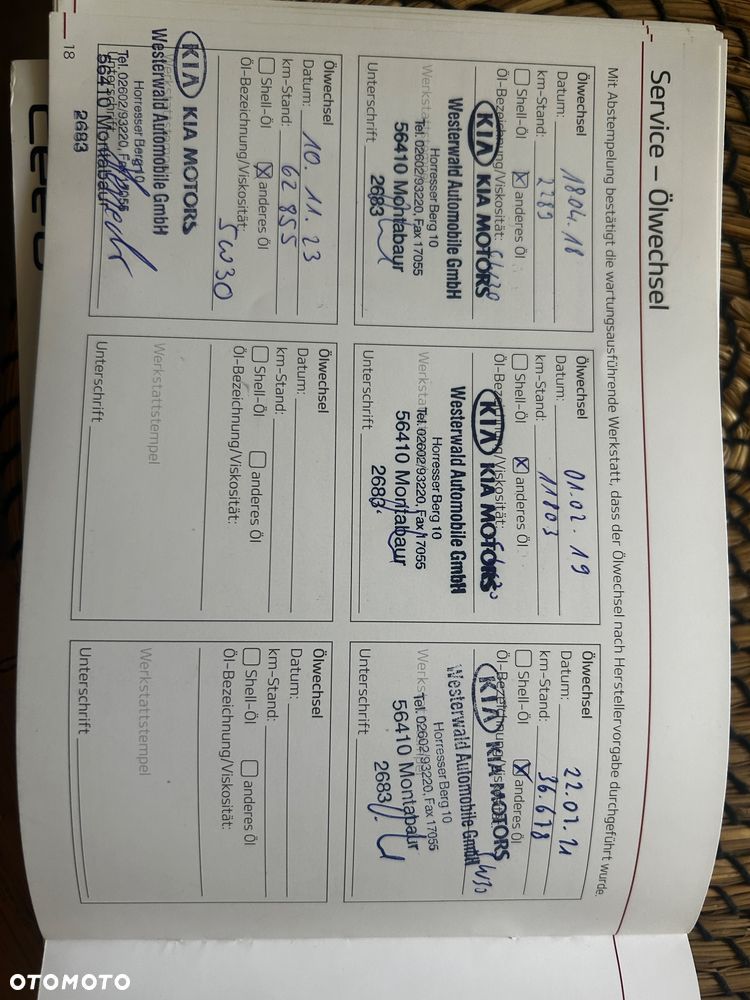 Service – Ölwechsel
Mit Abstempelung bestätigt die wartungsausführende Werkstatt, dass der Ölwechsel nach Herstellervorgabe durchgeführt wurde.
Ölwechsel
Datum: 18 04. 18
km-Stand: 2289
Shell-Öl X anderes Öl
Öl-Bezeichnung/Viskosität:
KIA KIA MOTORS
Westerwald Automobile GmbH
Horresser Berg 10
Tel. 02602/93220, Fax 17055
56410 Montabaur
2683
Unterschrift
Ölwechsel
Datum: 01.02.19
km-Stand: 11803
Shell-Öl X anderes Öl
Öl-Bezeichnung/Viskosität:
KIA KIA MOTORS
Westerwald Automobile GmbH
Horresser Berg 10
Tel. 02602/93220, Fax 17055
56410 Montabaur
2683
Unterschrift
Ölwechsel
Datum: 22.07.21
km-Stand: 36.678
Shell-Öl X anderes Öl
KIA KIA MOTORS
Westerwald Automobile GmbH
Horresser Berg 10
Tel. 02602/93220, Fax 17055
56410 Montabaur
2683
Unterschrift
Ölwechsel
Datum: 10. 11. 23
km-Stand: 62 855
Shell-Öl X anderes Öl
Öl-Bezeichnung/Viskosität: 5W30
KIA KIA MOTORS
Westerwald Automobile GmbH
Horresser Berg 10
Tel. 02602/93220, Fax 17055
56410 Montabaur
2683
Ölwechsel
Datum:
km-Stand:
Shell-Öl anderes Öl
Öl-Bezeichnung/Viskosität:
Werkstattstempel
Unterschrift
Ölwechsel
Datum:
km-Stand:
Shell-Öl anderes Öl
Öl-Bezeichnung/Viskosität:
Werkstattstempel
Unterschrift
18
OTOMOTO